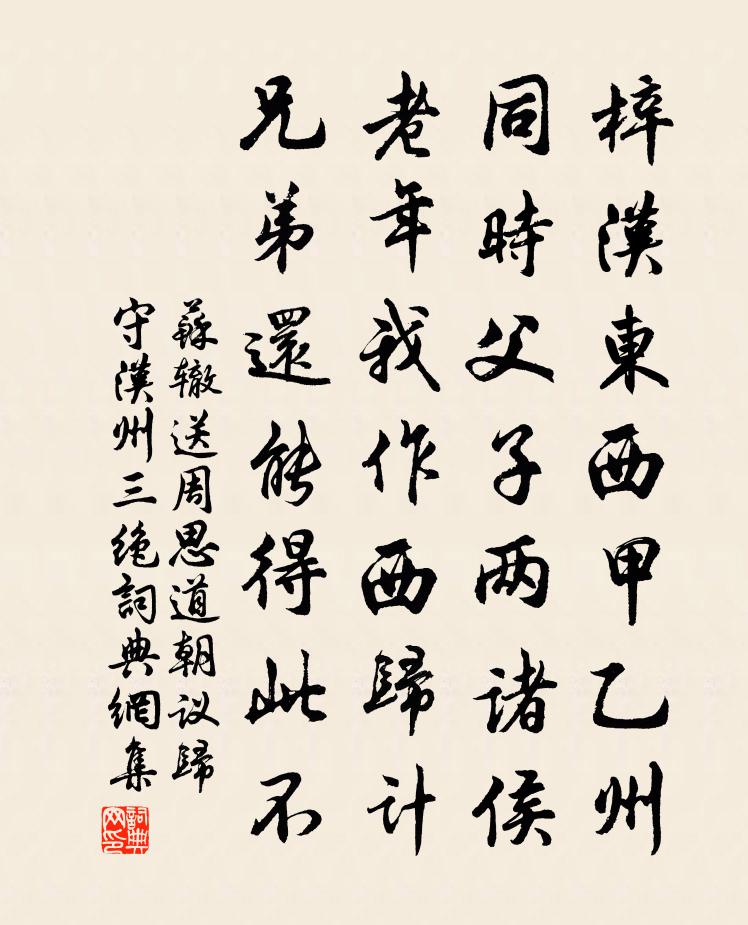 梓漢東西甲乙州
同時父子兩諸侯
老年我作西歸計
兄弟還能得此不
蘇辙送周思道朝议歸
守漢州三绝詞典網集
詞典网印